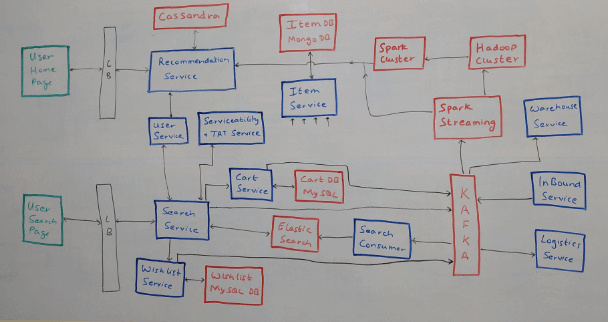 Cassandra
Item DB
Mongo DB
Spark
Cluster
Hadoop
Cluster
User
Home
Page
L
B
Recommendation
Service
Item
Service
Spark
Streaming
Warehouse
Service
User
Service
Serviceability
+ TAT Service
Cart
Service
Cart DB
MySQL
K
A
F
K
A
InBound
Service
User
Search
Page
L
B
Search
Service
Elastic
Search
Search
Consumer
Logistics
Service
Wishlist
Service
Wishlist
MySQL DB